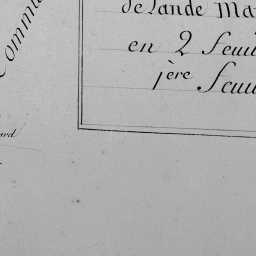 de Lande Ma
en 2 Feuil
1ère Feuil
Commu
ard